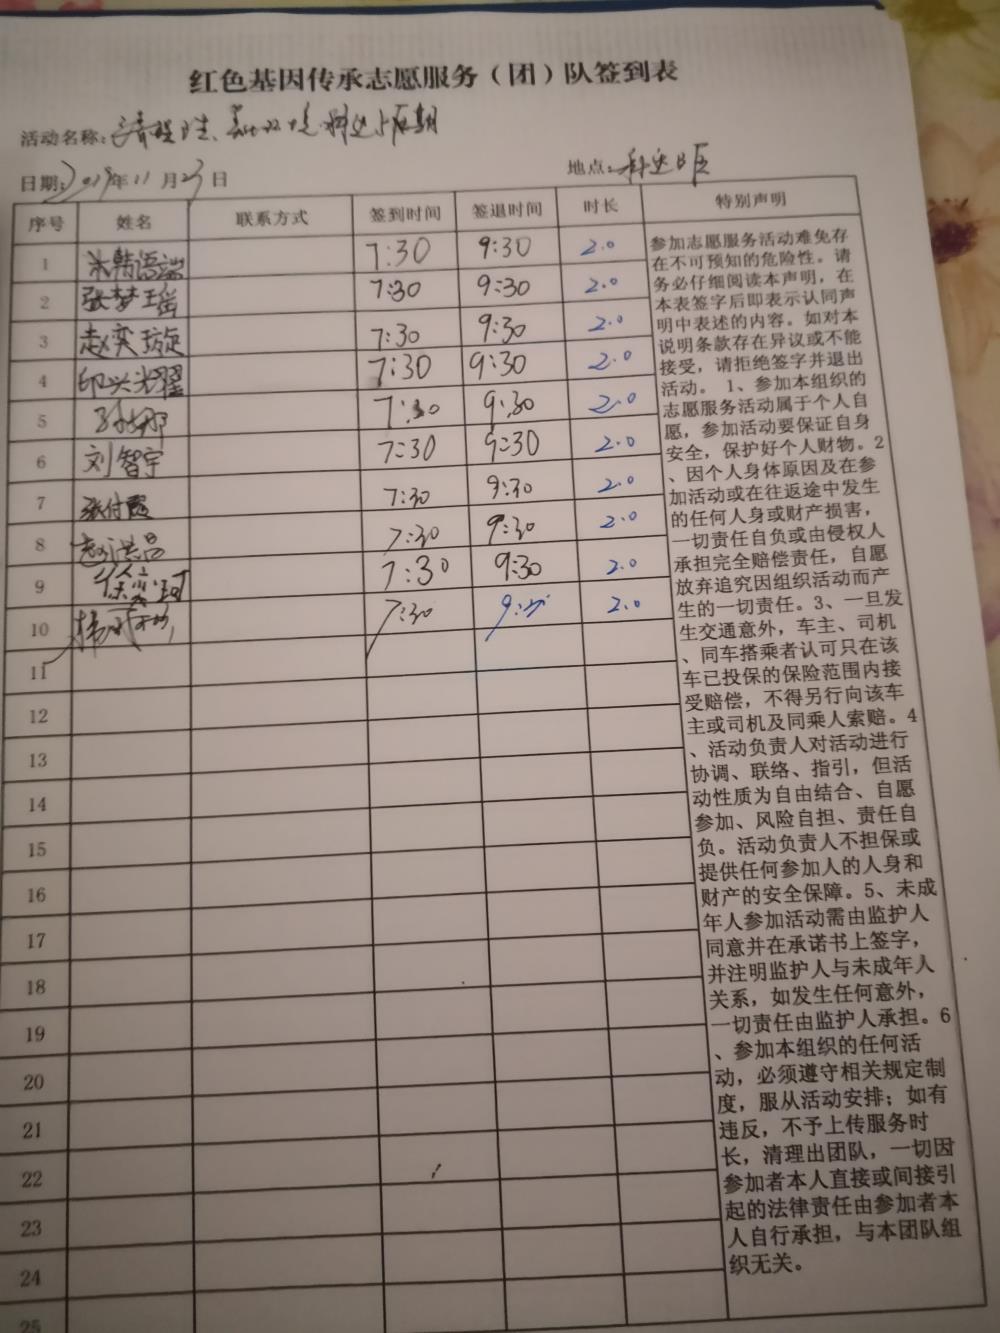 红色基因传承志愿服务（团）队签到表
活动名称：
日期：2019年11月23日 地点：科达小区
序号 姓名 联系方式 签到时间 签退时间 时长 特别声明
1 7:30 9:30 2.0
2 张梦瑶 7:30 9:30 2.0
3 赵奕璇 7:30 9:30 2.0
4 印兴光耀 7:30 9:30 2.0
5 7:30 9:30 2.0
6 刘智宇 7:30 9:30 2.0
7 张付霞 7:30 9:30 2.0
8 7:30 9:30 2.0
9 7:30 9:30 2.0
10 7:30 2.0
11
12
13
14
15
16
17
18
19
20
21
22
23
24
25
参加志愿服务活动难免存
在不可预知的危险性。请
务必仔细阅读本声明，在
本表签字后即表示认同声
明中表述的内容。如对本
说明条款存在异议或不能
接受，请拒绝签字并退出
活动。 1、参加本组织的
志愿服务活动属于个人自
愿，参加活动要保证自身
安全，保护好个人财物。2
、因个人身体原因及在参
加活动或在往返途中发生
的任何人身或财产损害，
一切责任自负或由侵权人
承担完全赔偿责任，自愿
放弃追究因组织活动而产
生的一切责任。3、一旦发
生交通意外，车主、司机
、同车搭乘者认可只在该
车已投保的保险范围内接
受赔偿，不得另行向该车
主或司机及同乘人索赔。4
、活动负责人对活动进行
协调、联络、指引，但活
动性质为自由结合、自愿
参加、风险自担、责任自
负。活动负责人不担保或
提供任何参加人的人身和
财产的安全保障。5、未成
年人参加活动需由监护人
同意并在承诺书上签字，
并注明监护人与未成年人
关系，如发生任何意外，
一切责任由监护人承担。6
、参加本组织的任何活
动，必须遵守相关规定制
度，服从活动安排；如有
违反，不予上传服务时
长，清理出团队，一切因
参加者本人直接或间接引
起的法律责任由参加者本
人自行承担，与本团队组
织无关。